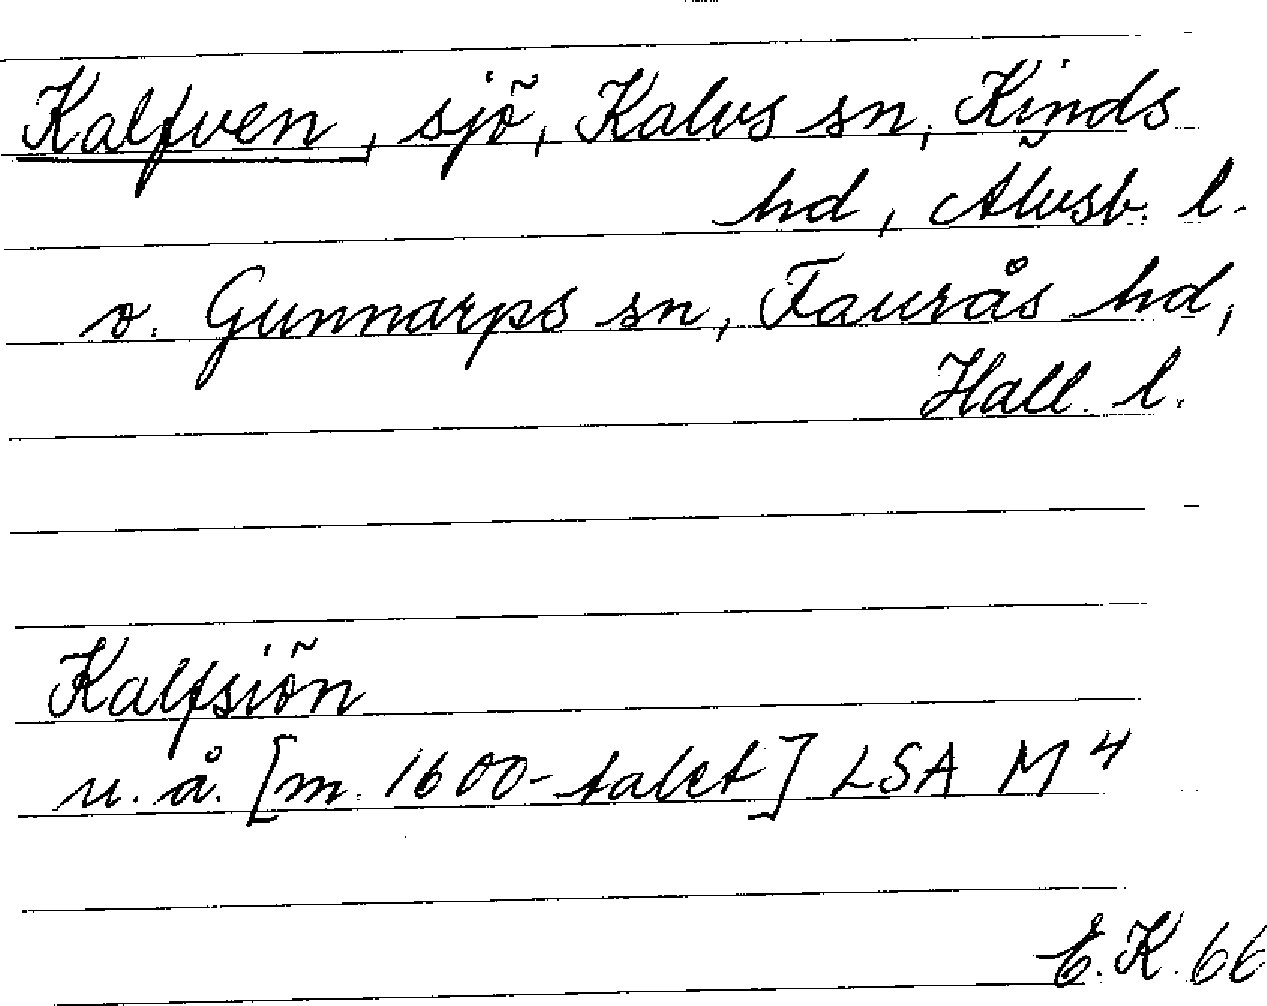 Kalfven, sjö, Kalvs sn, Kinds
hd, Älvsb. l.
o. Gunnarps sn, Faurås hd,
Hall. l.
Kalfsiön
u.å. [m. 1600-talet] LSA M4
E.K. 66